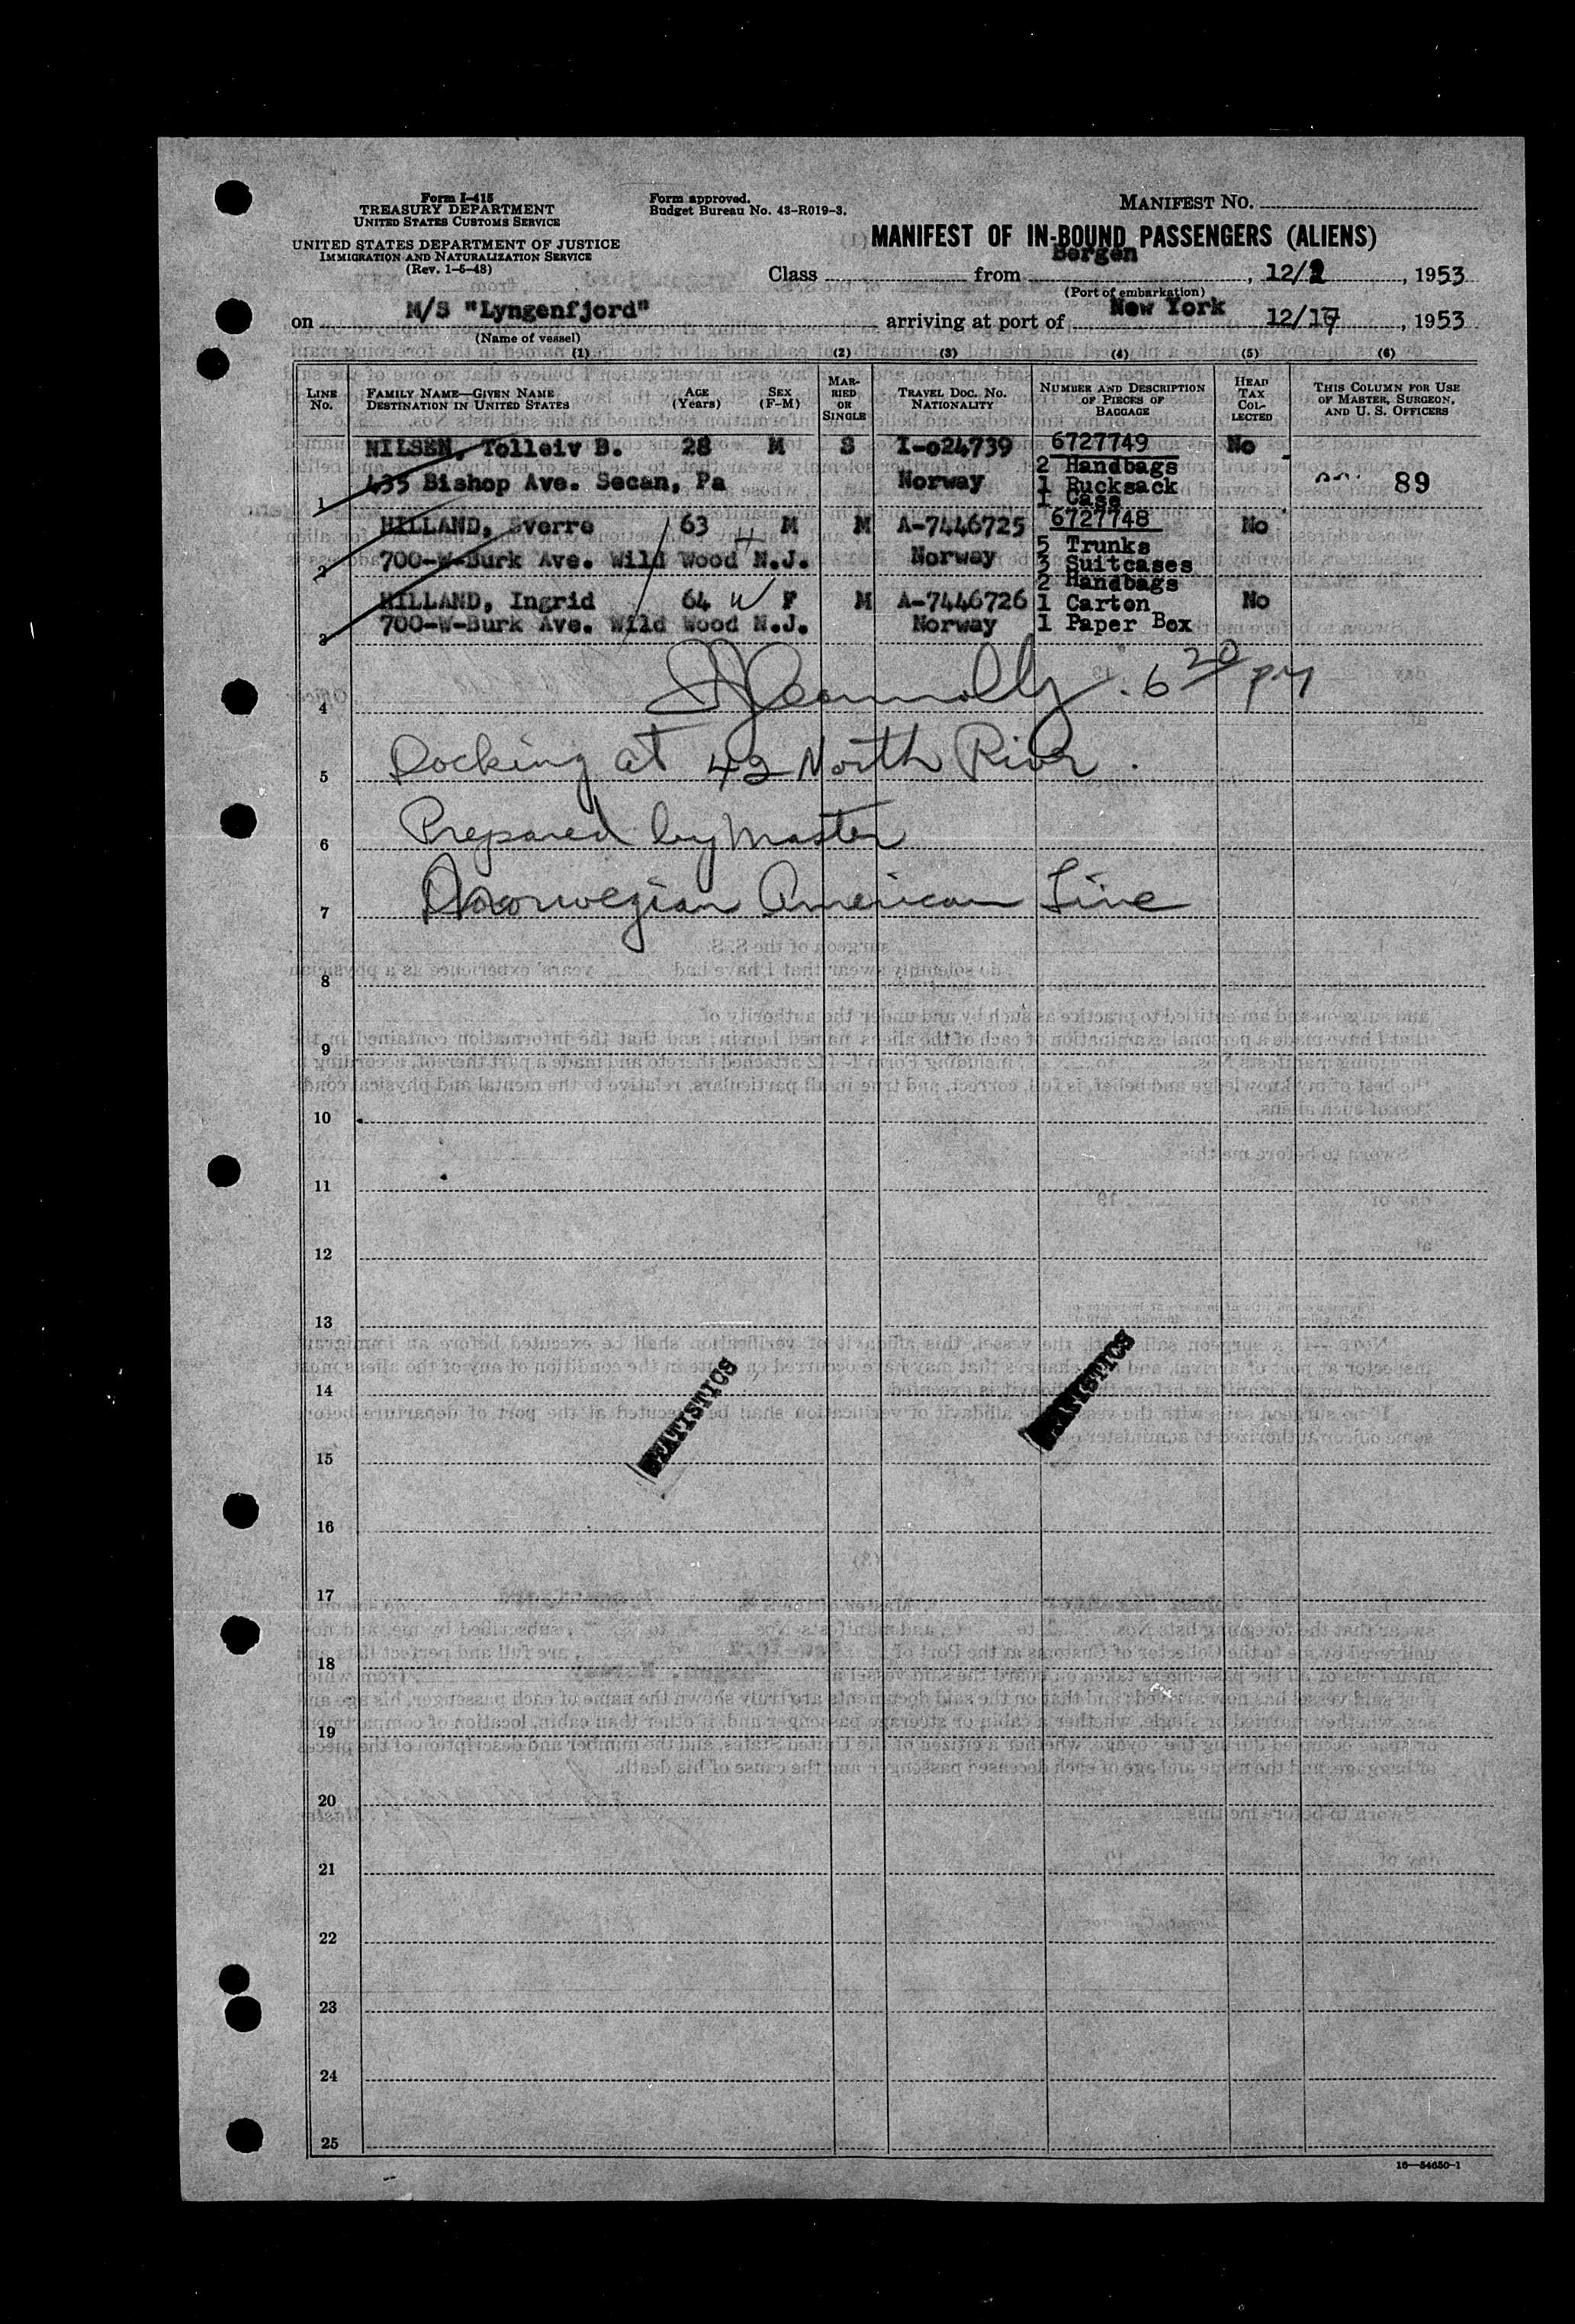 Form I-415
TREASURY DEPARTMENT
UNITED STATES CUSTOMS SERVICE
UNITED STATES DEPARTMENT OF JUSTICE
IMMIGRATION AND NATURALIZATION SERVICE
(Rev. 1-5-48)
Form approved.
Budget Bureau No. 43-R019-3.
MANIFEST NO.
MANIFEST OF IN-BOUND PASSENGERS (ALIENS)
Class from Bergen, 12/2, 1953
(Port of embarkation)
on M/S "Lyngenfjord" arriving at port of New York 12/17, 1953
(Name of vessel)
(1) (2) (3) (4) (5) (6)
LINE No. FAMILY NAME—GIVEN NAME DESTINATION IN UNITED STATES AGE (Years) SEX (F-M) MARRIED OR SINGLE TRAVEL DOC. NO. NATIONALITY NUMBER AND DESCRIPTION OF PIECES OF BAGGAGE HEAD TAX COLLECTED THIS COLUMN FOR USE OF MASTER, SURGEON, AND U. S. OFFICERS
NILSEN, Tolleiv B. 28 M S I-o24739 6727749 No
2 Handbags
1 435 Bishop Ave. Secan, Pa Norway 1 Rucksack 89
1 Case
HILLAND, Sverre 63 M M A-7446725 6727748 No
5 Trunks
2 700-W-Burk Ave. Wild Wood N.J. Norway 3 Suitcases
2 Handbags
HILLAND, Ingrid 64 W F M A-7446726 1 Carton No
3 700-W-Burk Ave. Wild Wood N.J. Norway 1 Paper Box
4 Connolly. 6 20 PM
5 Docking at 42 North River.
6 Prepared by Master
7 Norwegian American Line
8
9
10
11
12
13
14
STATISTICS STATISTICS
15
16
17
18
19
20
21
22
23
24
25
16—54650-1